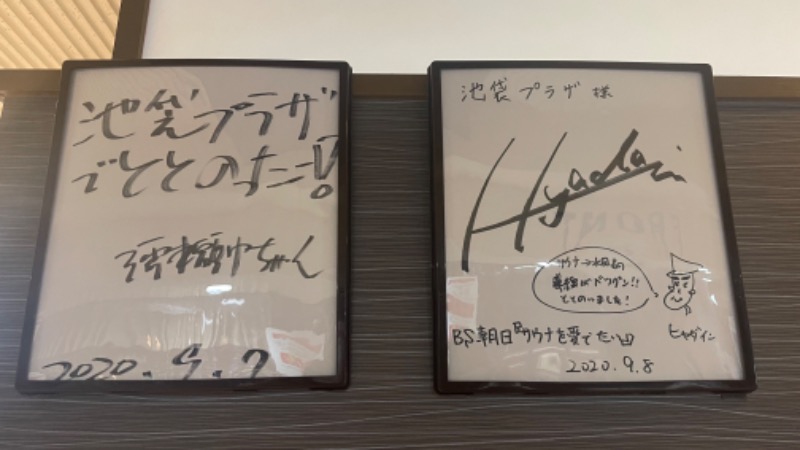 池袋プラザ
でととのった!!
ゆちゃん
2020.9.7
池袋プラザ様
Hyadain
サウナ→水風呂の
導線がバツグン!!
ととのいました!
ヒャダイン
BS朝日『サウナを愛でたい』
2020.9.8